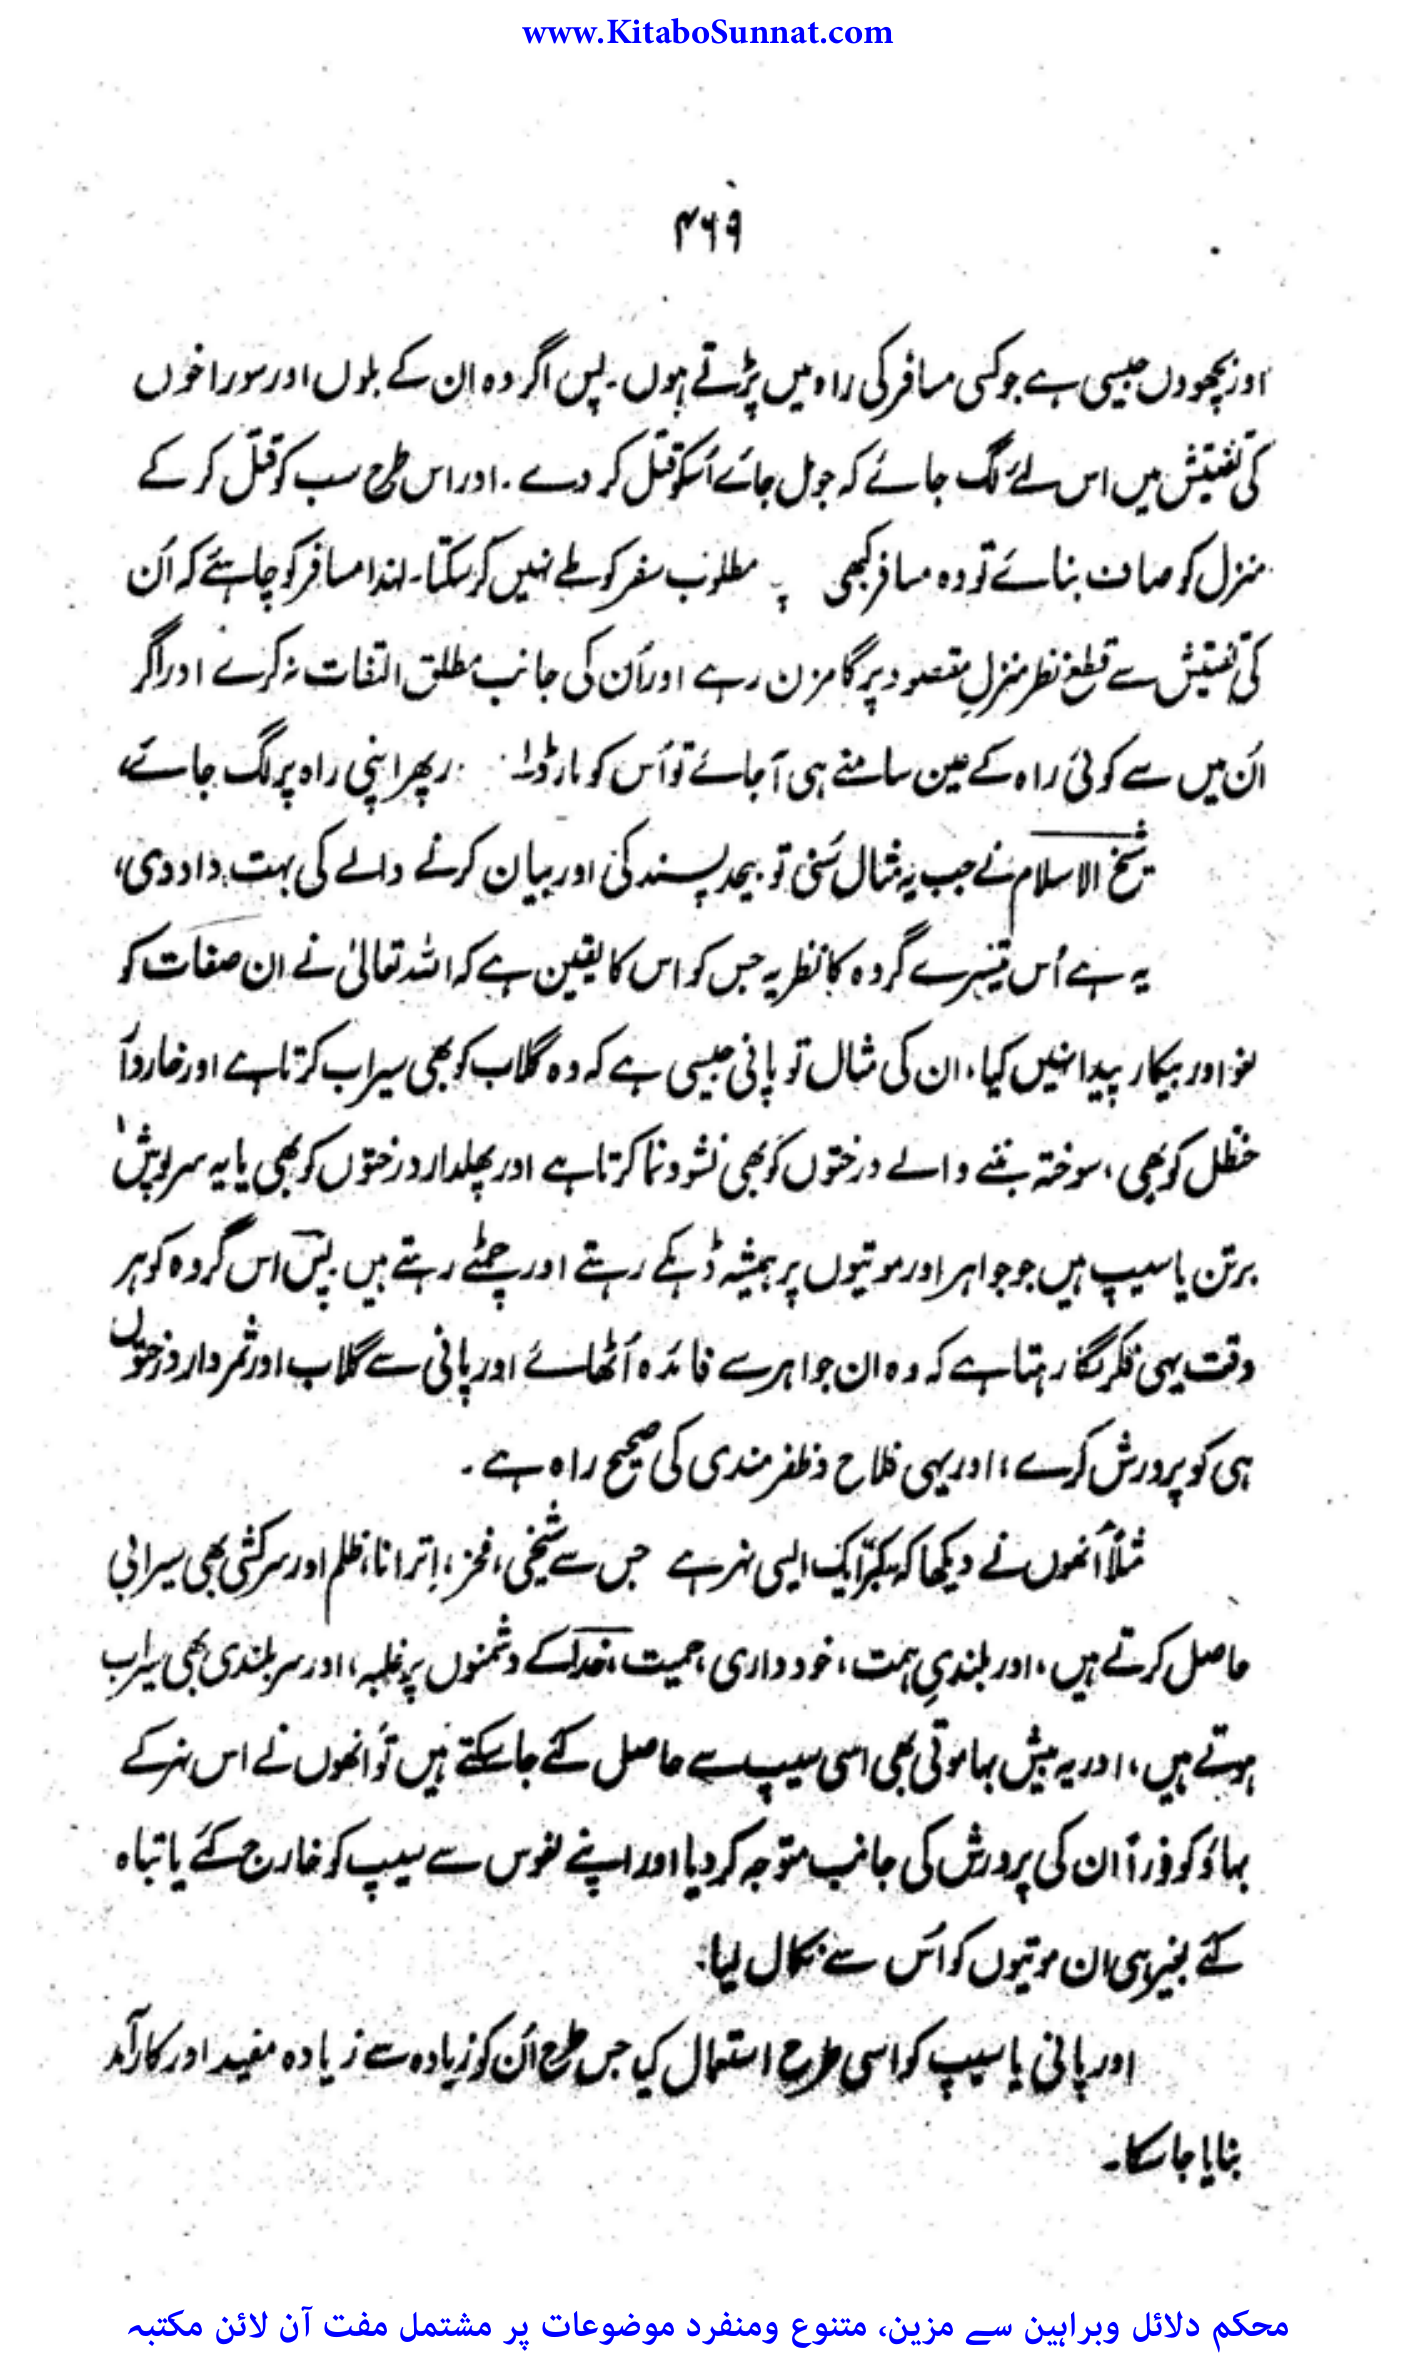 www.KitaboSunnat.com
۴۶۹
اور بچھوؤں جیسی ہے جو کسی مسافر کی راہ میں پڑتے ہوں۔ پس اگر وہ ان کے بلوں اور سوراخوں
کی تفتیش میں اس لئے لگ جائے کہ جو مل جائے اُسکو قتل کر دے۔ اور اس طرح سب کو قتل کر کے
منزل کو صاف بنائے تو وہ مسافر کبھی مطلوب سفر کو طے نہیں کر سکتا۔ لہٰذا مسافر کو چاہئے کہ اُن
کی تفتیش سے قطع نظر منزلِ مقصود پر گامزن رہے اور اُن کی جانب مطلق التفات نہ کرے اور اگر
اُن میں سے کوئی راہ کے عین سامنے ہی آجائے تو اُس کو مار ڈالے پھر اپنی راہ پر لگ جائے،
شیخ الاسلام نے جب یہ مثال سُنی تو بیحد پسند کی اور بیان کرنے والے کی بہت داد دی،
یہ ہے اُس تیسرے گروہ کا نظریہ جس کو اس کا یقین ہے کہ اللہ تعالیٰ نے ان صفات کو
لغو اور بیکار پیدا نہیں کیا، ان کی مثال تو پانی جیسی ہے کہ وہ گلاب کو بھی سیراب کرتا ہے اور خاردار
حنظل کو بھی، سوختہ بننے والے درختوں کو بھی نشوونما کرتا ہے اور پھلدار درختوں کو بھی یا یہ سرپوش
برتن یا سیپ ہیں جو جواہر اور موتیوں پر ہمیشہ ڈہکے رہتے اور چمٹے رہتے ہیں۔ پس اس گروہ کو ہر
وقت یہی فکر لگا رہتا ہے کہ وہ ان جواہر سے فائدہ اُٹھائے اور پانی سے گلاب اور ثمردار درختوں
ہی کو پرورش کرے، اور یہی فلاح و ظفرمندی کی صحیح راہ ہے۔
مثلاً اُنھوں نے دیکھا کہ تکبّر ایک ایسی نہر ہے جس سے شیخی، فخر، اِترانا، ظلم اور سرکشی بھی سیرابی
حاصل کرتے ہیں، اور بلندیِ ہمت، خودداری، حمیت، خدا کے دشمنوں پر غلبہ، اور سربلندی بھی سیراب
ہوتے ہیں، اور یہ بیش بہا موتی بھی اسی سیپ سے حاصل کئے جا سکتے ہیں تو اُنھوں نے اس نہر کے
بہاؤ کو فوراً ان کی پرورش کی جانب متوجہ کر دیا اور اپنے نفوس سے سیپ کو خارج کئے یا تباہ
کئے بغیر ہی ان موتیوں کو اُس سے نکال لیا۔
اور پانی یا سیپ کو اسی طرح استعمال کیا جس طرح اُن کو زیادہ سے زیادہ مفید اور کارآمد
بنایا جاسکا۔
محکم دلائل وبراہین سے مزین، متنوع ومنفرد موضوعات پر مشتمل مفت آن لائن مکتبہ